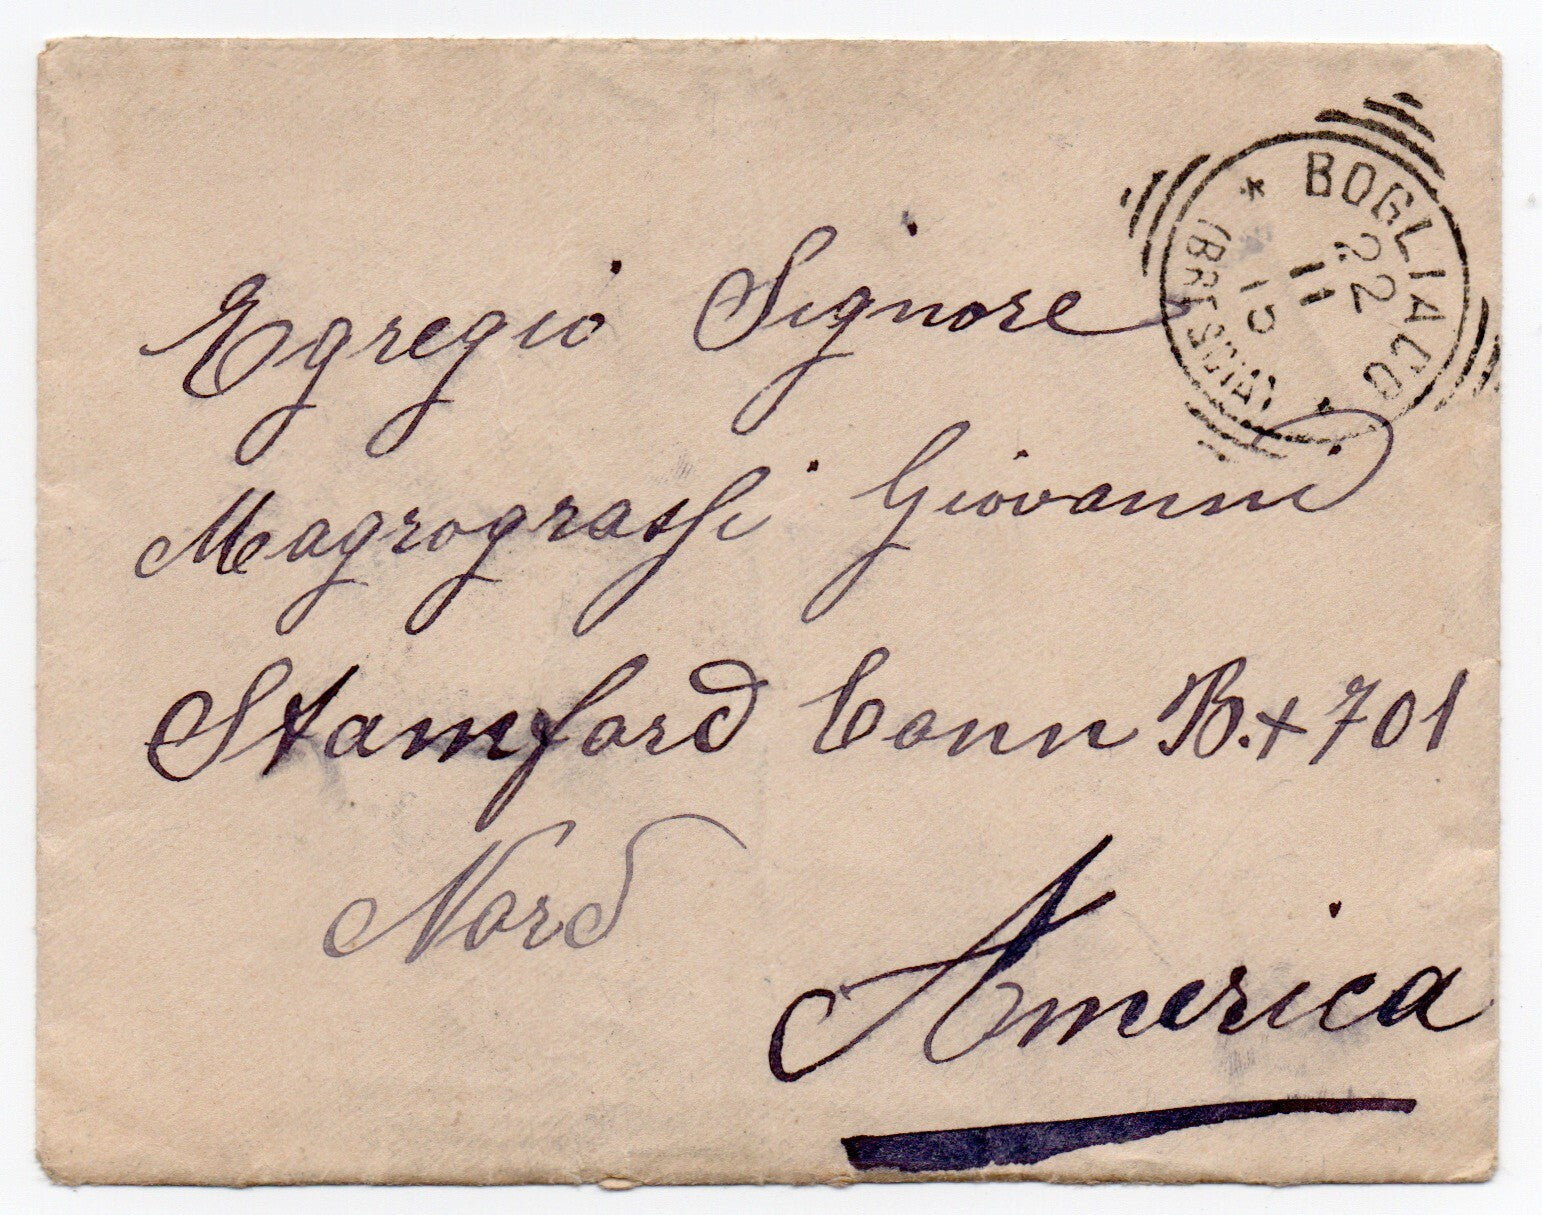 BOGLIACO
22
11
15
(BRESCIA)
Egregio Signore
Magrograssi Giovanni
Stamford Conn B.x 701
Nord
America